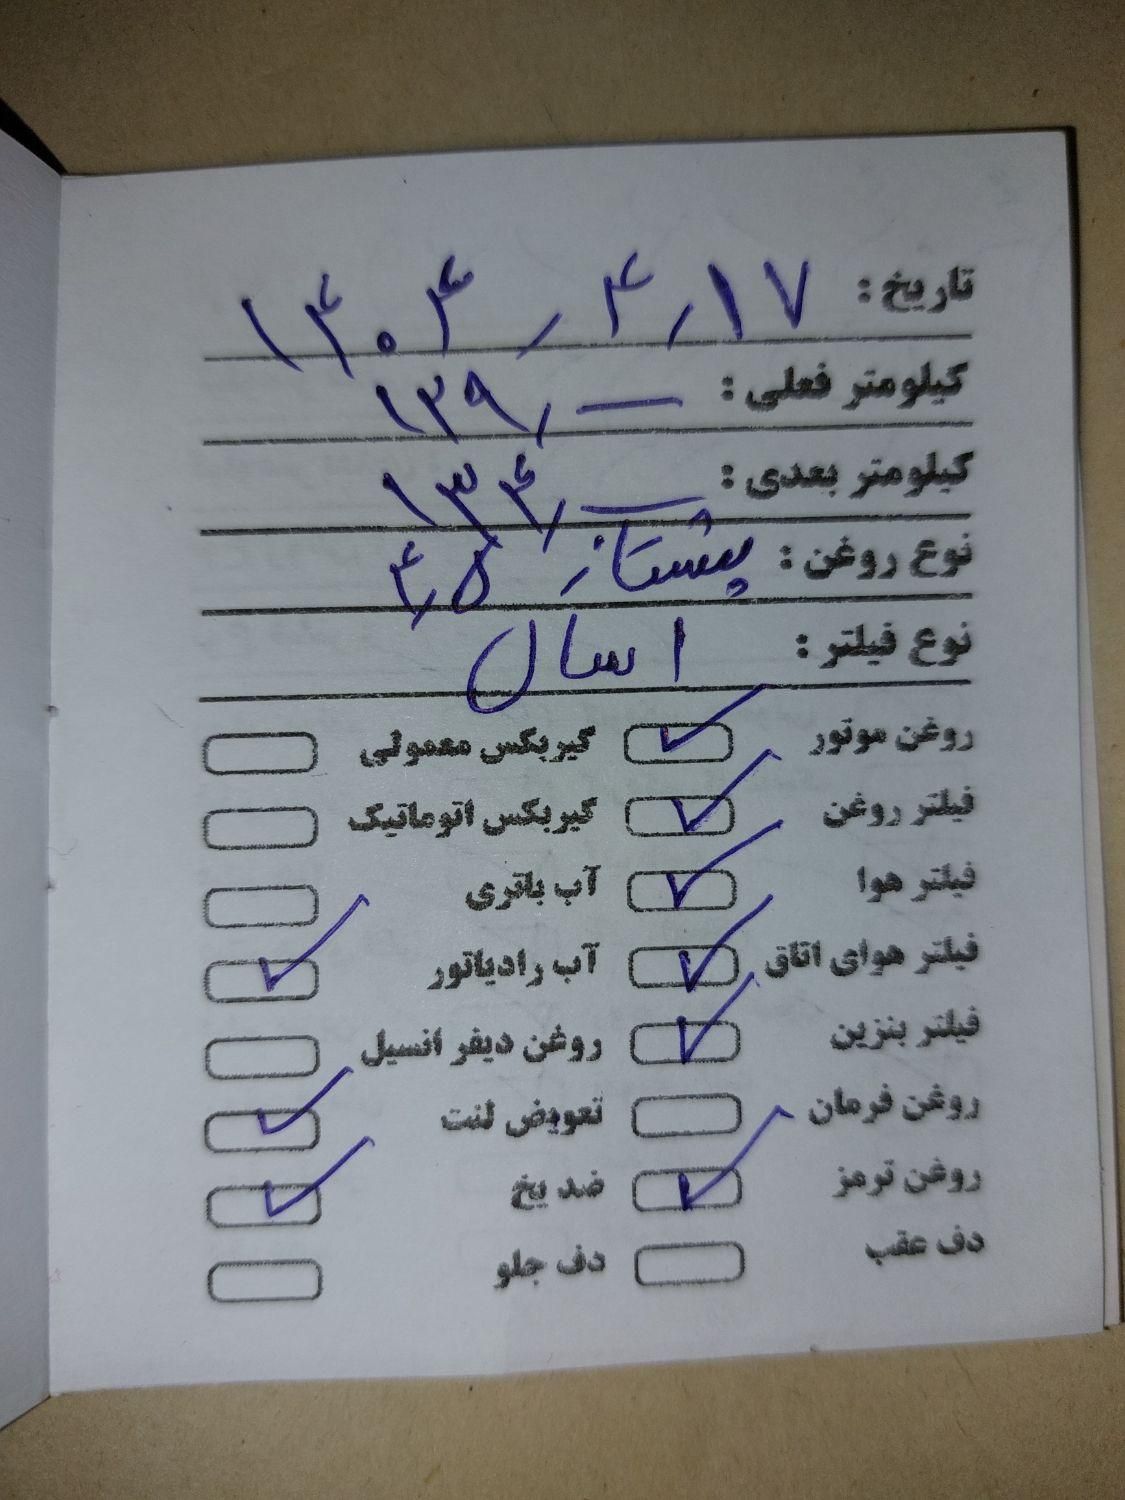 تاریخ : ۱۴۰۴/۴/۱۷
کیلومتر فعلی : ۱۲۹/—
کیلومتر بعدی : ۱۳۴/—
نوع روغن : پیشتاز ۴/۵
نوع فیلتر : ۱ سال
روغن موتور ✓ گیربکس معمولی
فیلتر روغن ✓ گیربکس اتوماتیک
فیلتر هوا ✓ آب باتری
فیلتر هوای اتاق ✓ آب رادیاتور ✓
فیلتر بنزین ✓ روغن دیفرانسیل
روغن فرمان تعویض لنت ✓
روغن ترمز ✓ ضد یخ ✓
دف عقب دف جلو